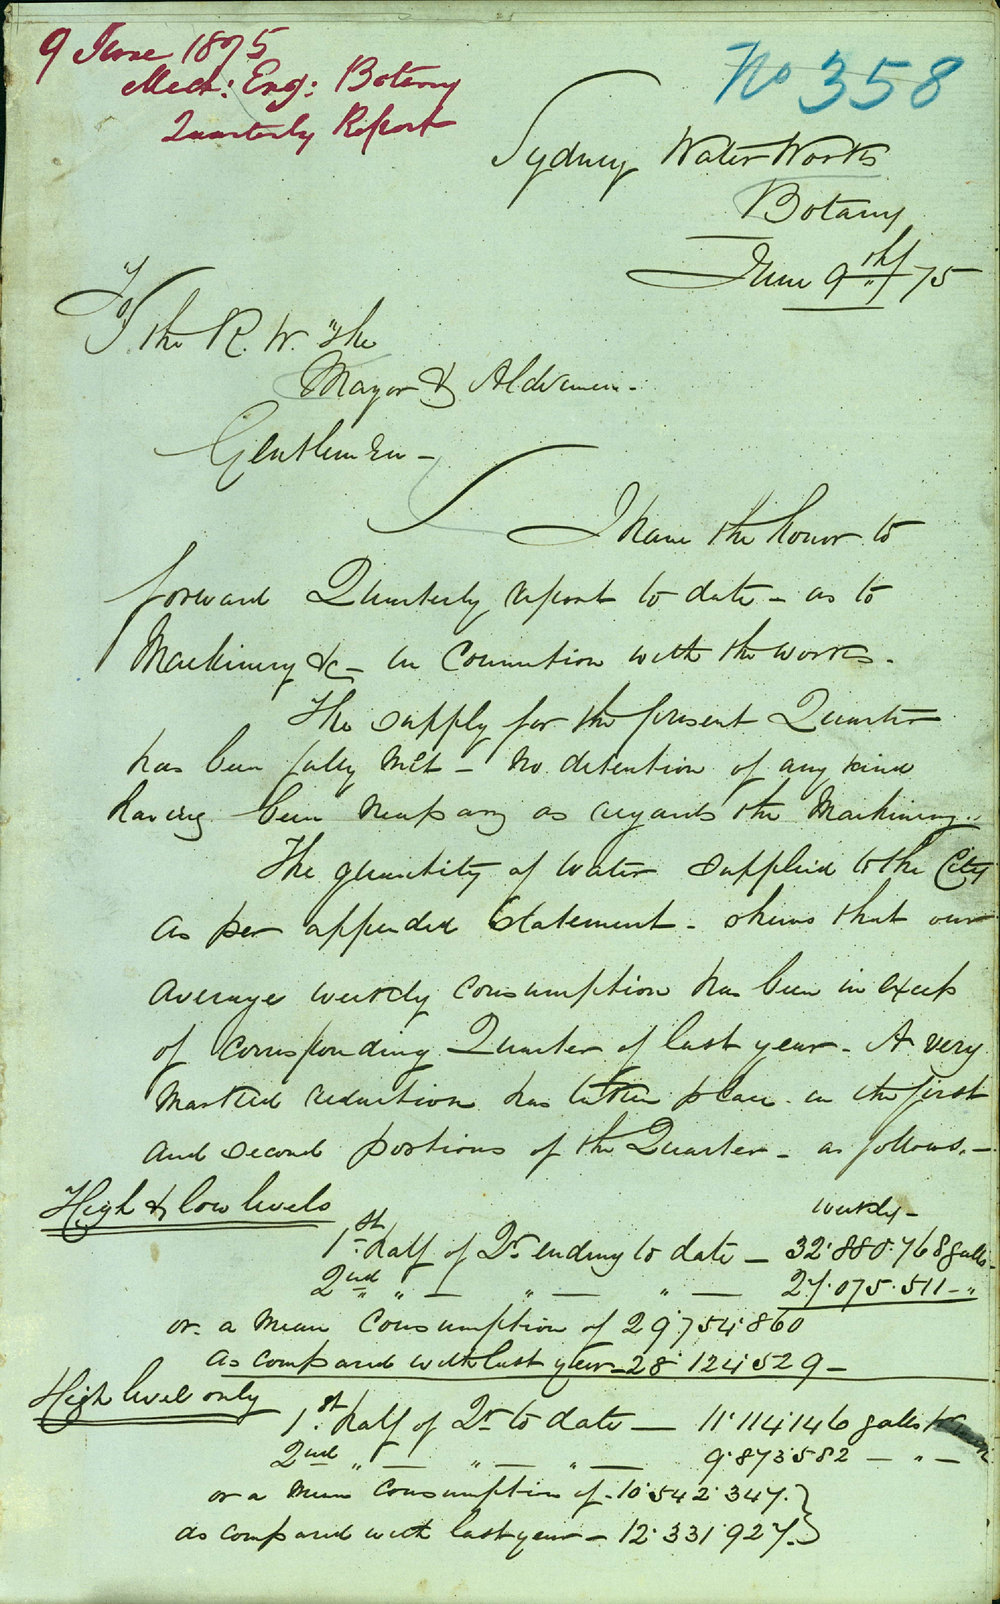 9 June 1875
Mech: Eng: Botany
Quarterly Report
No 358
Sydney Water Works
Botany
June 9th/75
To
The R. W. "The
Mayor & Aldermen -
Gentlemen -
I have the honor to
forward Quarterly report to date - as to
Machinery &c - in connection with the works.
The supply for the present Quarter
has been fully met - no detention of any kind
having been necessary as regards the Machinery..
The quantity of water supplied to the City
as per appended statement - shews that our
average weekly consumption has been in excess
of corresponding Quarter of last year - A very
marked reduction has taken place in the first
and second portions of the Quarter - as follows. -
High & low levels
weekly -
1st half of Qr ending to date - 32.880.768 galls -
2nd " - " - " - 27.075.511 - "
or a mean consumption of 29.754.860
as compared with last year - 28.124.529 -
High level only
1st half of Qr to date - 11.114.146 galls
2nd " - " - " - 9.873.582 - " -
or a mean consumption of - 10.542.347.
as compared with last year - 12.331.927.